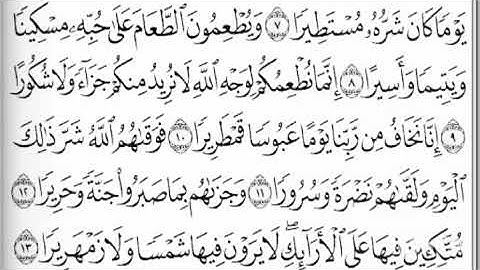 يَوْمًا كَانَ شَرُّهُۥ مُسْتَطِيرًا ٧ وَيُطْعِمُونَ ٱلطَّعَامَ عَلَىٰ حُبِّهِۦ مِسْكِينًا
وَيَتِيمًا وَأَسِيرًا ٨ إِنَّمَا نُطْعِمُكُمْ لِوَجْهِ ٱللَّهِ لَا نُرِيدُ مِنكُمْ جَزَآءً وَلَا شُكُورًا
٩ إِنَّا نَخَافُ مِن رَّبِّنَا يَوْمًا عَبُوسًا قَمْطَرِيرًا ١٠ فَوَقَىٰهُمُ ٱللَّهُ شَرَّ ذَٰلِكَ
ٱلْيَوْمِ وَلَقَّىٰهُمْ نَضْرَةً وَسُرُورًا ١١ وَجَزَىٰهُم بِمَا صَبَرُوا۟ جَنَّةً وَحَرِيرًا ١٢
مُّتَّكِـِٔينَ فِيهَا عَلَى ٱلْأَرَآئِكِ ۖ لَا يَرَوْنَ فِيهَا شَمْسًا وَلَا زَمْهَرِيرًا ١٣